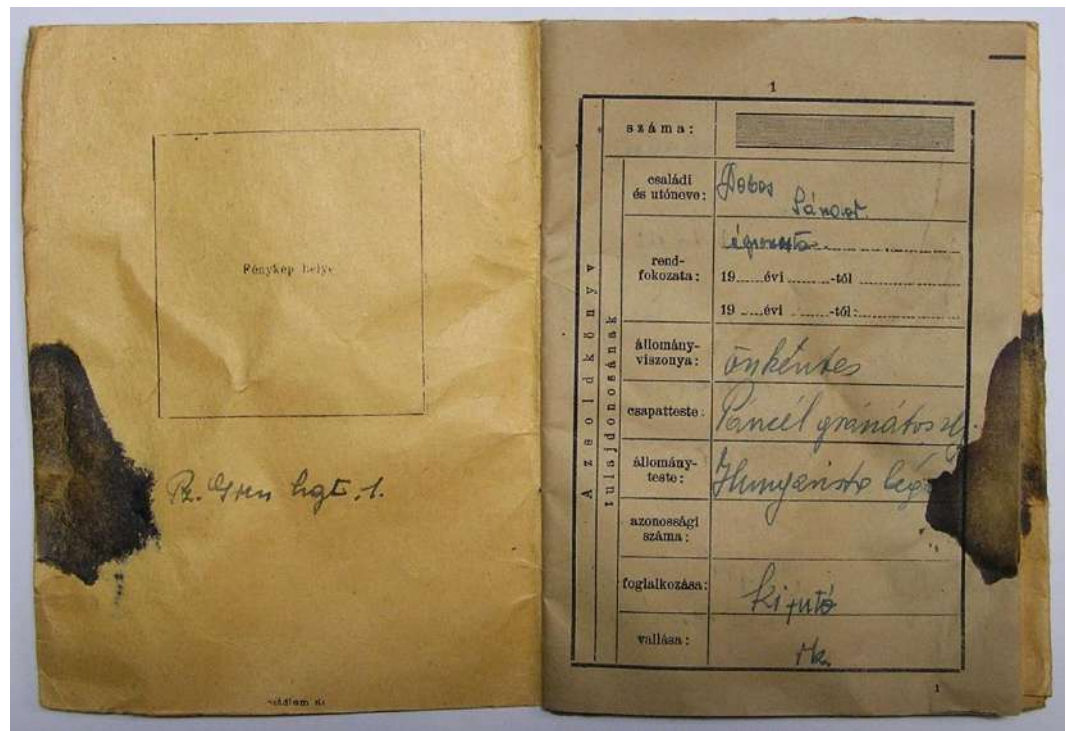 Fénykép helye
Pz. Gren hgt. 1.
1
A zsoldkönyv
tulajdonosának
száma:
családi
és utóneve:
Dobos
Sándor
rend-
fokozata:
19 évi -tól
19 évi -tól:
állomány-
viszonya:
önkéntes
csapatteste:
Páncél gránátos
állomány-
teste:
Hungarista
azonossági
száma:
foglalkozása:
vallása:
rk.
1